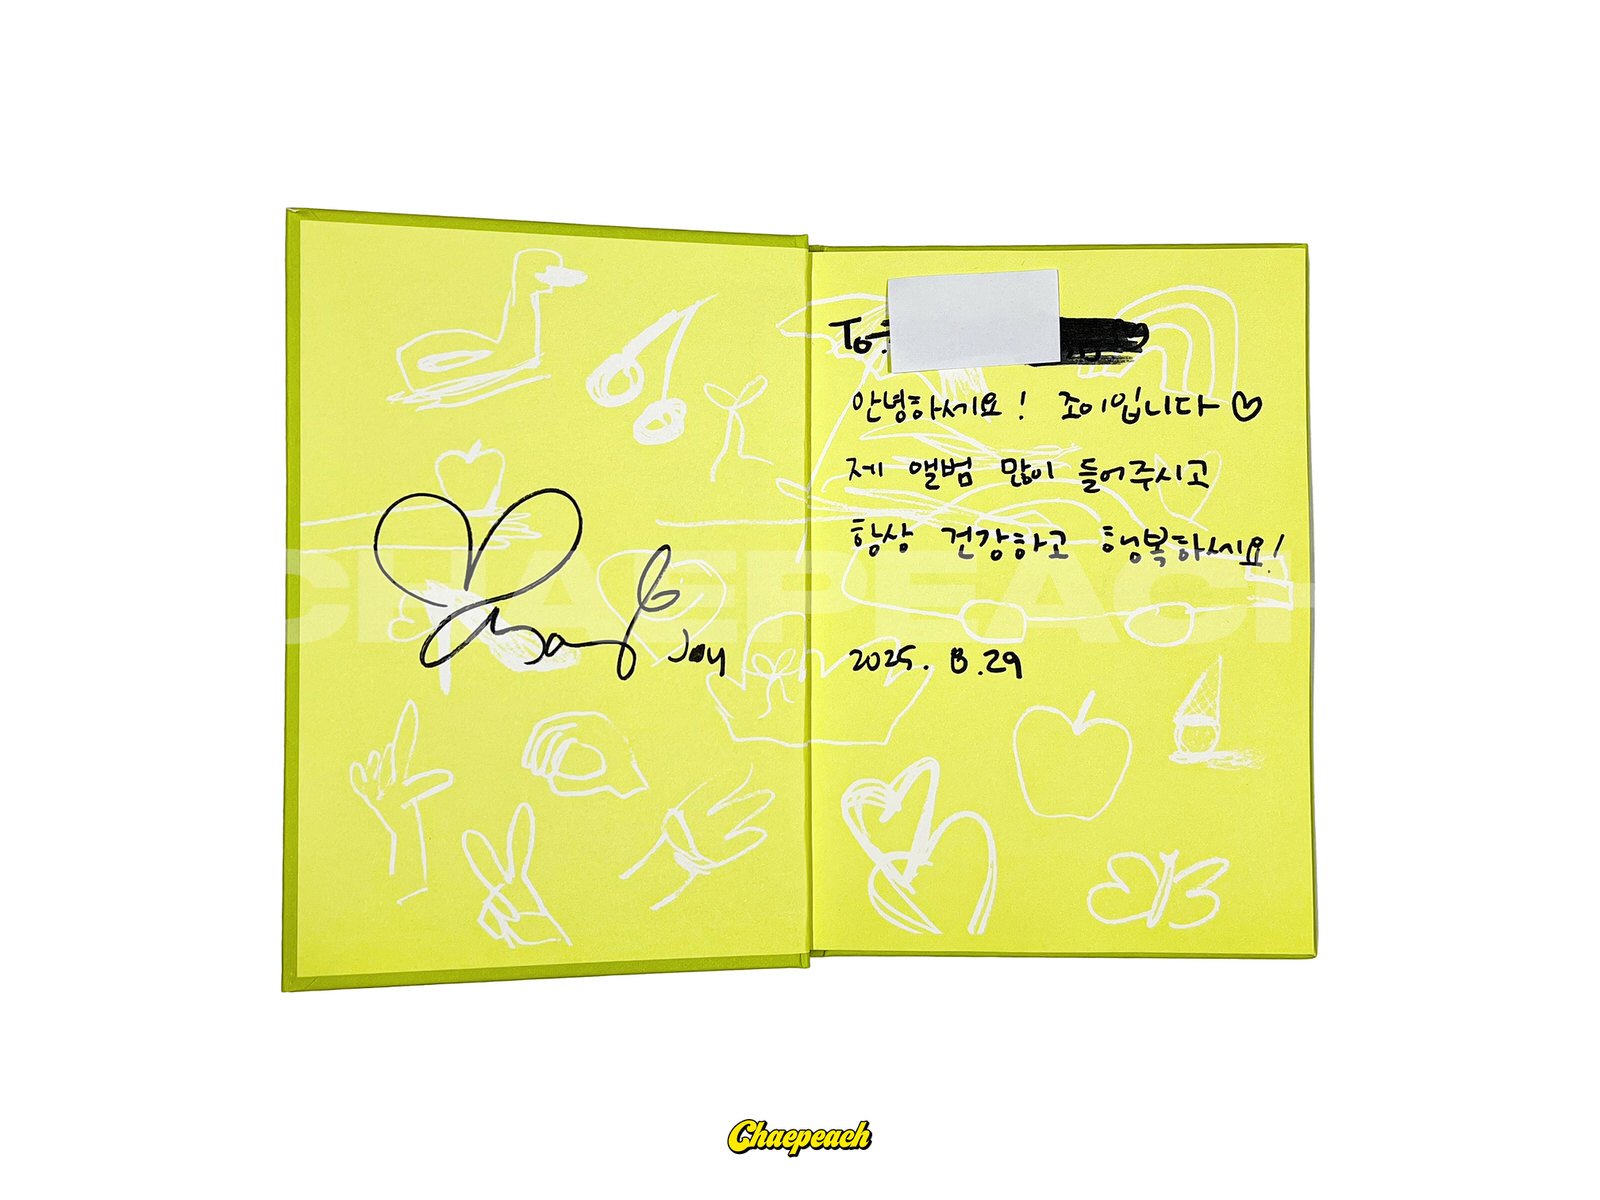 Joy
To:
안녕하세요! 조이입니다♡
제 앨범 많이 들어주시고
항상 건강하고 행복하세요!
2025. 8.29
CHAEPEACH
Chaepeach